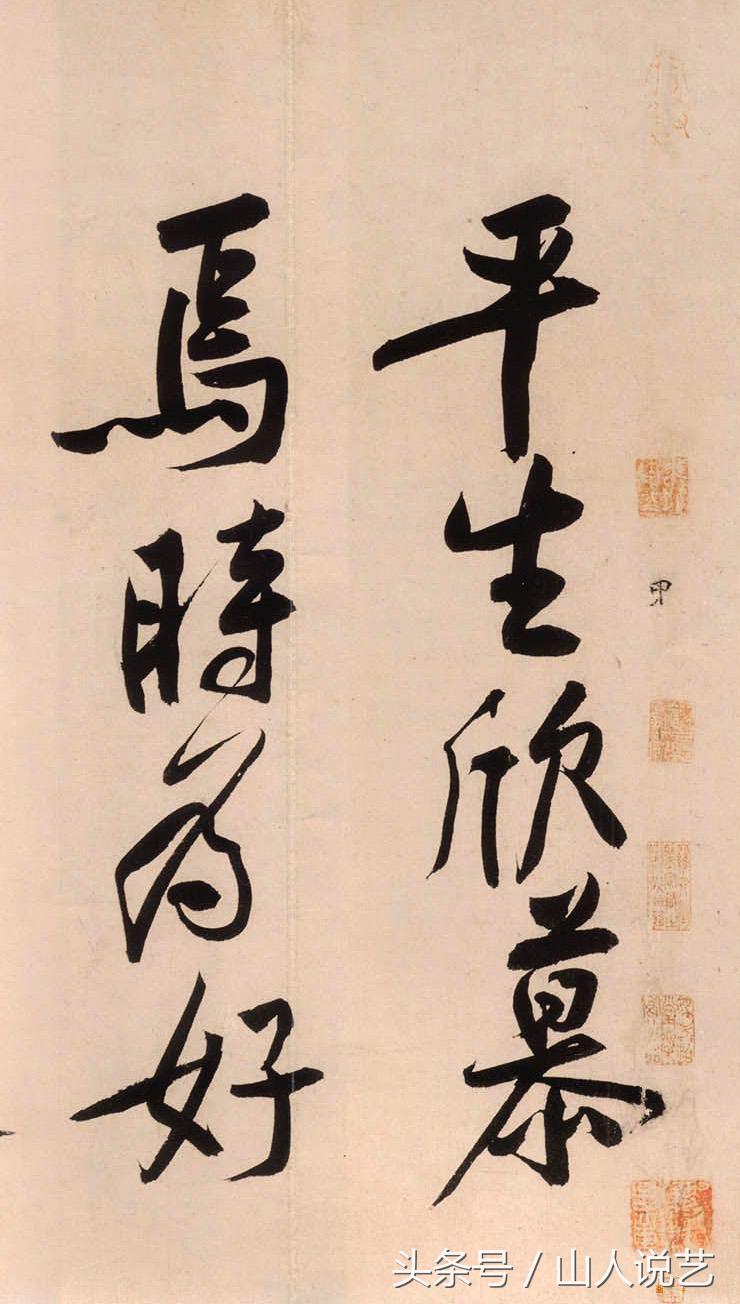 平生欣慕
焉時為好
甲
头条号 / 山人说艺